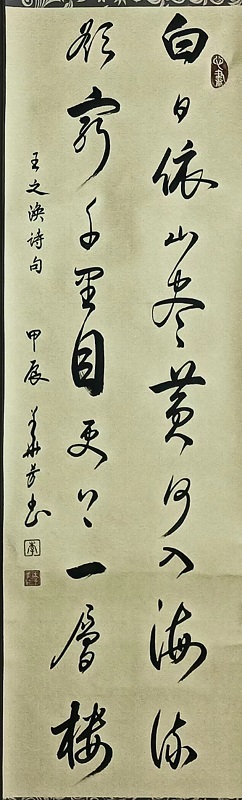 白日依山尽黄河入海流
欲穷千里目更上一层楼
王之涣诗句 甲辰 书